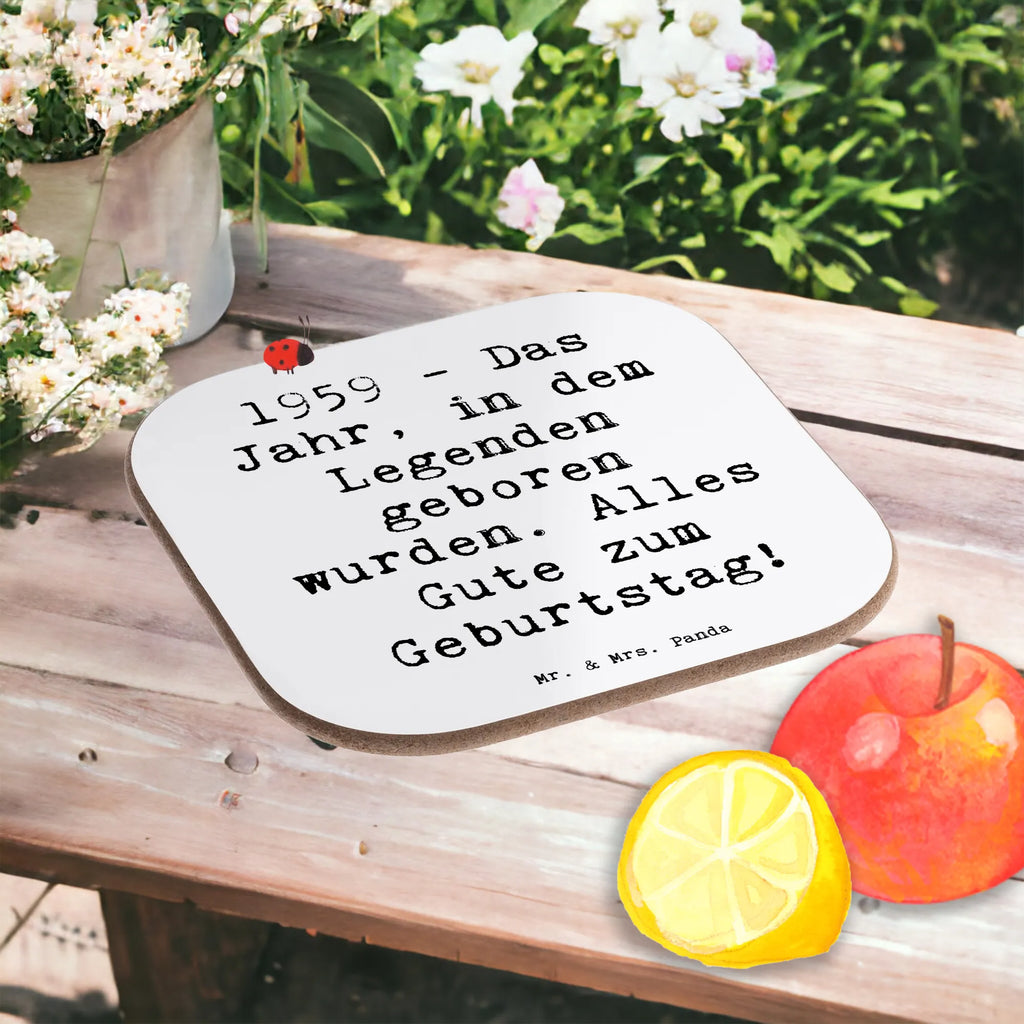 1959 - Das
Jahr, in dem
Legenden
geboren
wurden. Alles
Gute zum
Geburtstag!
Mr. & Mrs. Panda